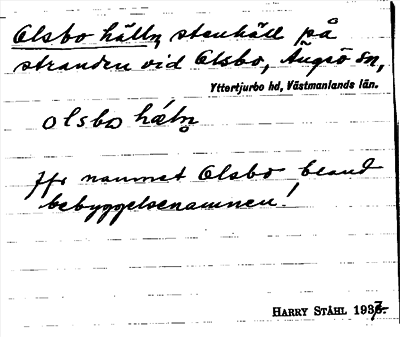 Olsbo hälln, stenhäll på
stranden vid Olsbo, Ängsö sn,
Yttertjurbo hd, Västmanlands län.
olsbo hä́ln
Jfr namnet Olsbo bland
bebyggelsenamnen!
HARRY STÅHL 1937.